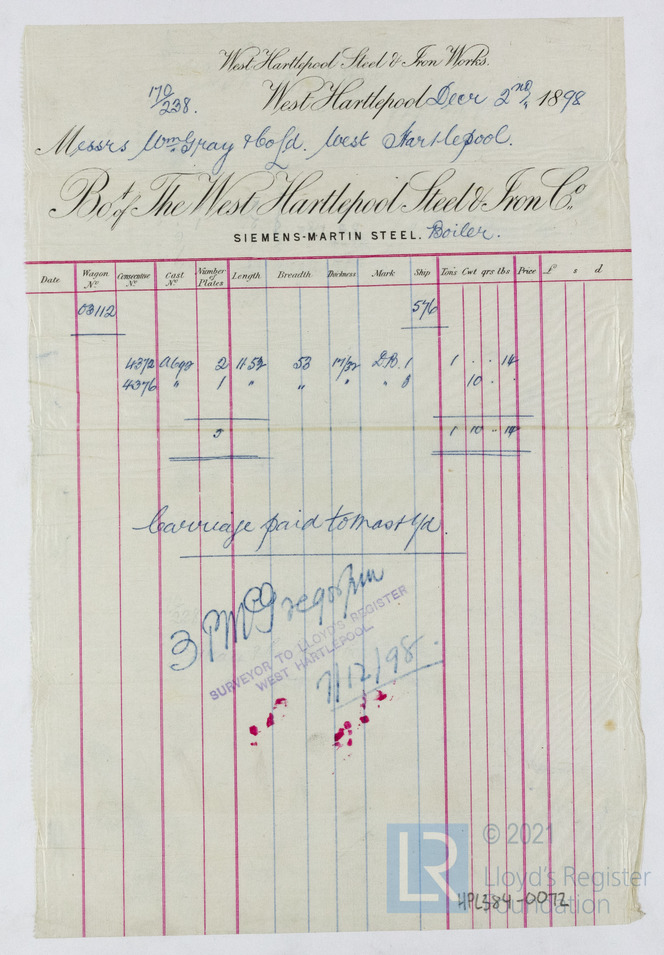 West Hartlepool Steel & Iron Works.
170/238.
West Hartlepool Decr 2nd 1898
Messrs Wm Gray & Co Ld. West Hartlepool.
Bot of The West Hartlepool Steel & Iron Co
SIEMENS-MARTIN STEEL. Boiler.
Date Wagon No Consecutive No Cast No Number of Plates Length Breadth Thickness Mark Ship Tons Cwt qrs lbs Price £ s d
03112 576
4372 2 53 17/32 D.B. 1 1 . . 14
4376 " 1 " " " " 10 . .
3 1 10 .. 14
Carriage paid to
3 P McGregor
SURVEYOR TO LLOYD'S REGISTER
WEST HARTLEPOOL
7/12/98.
LR
© 2021
Lloyd's Register
Foundation
HPL584-0072